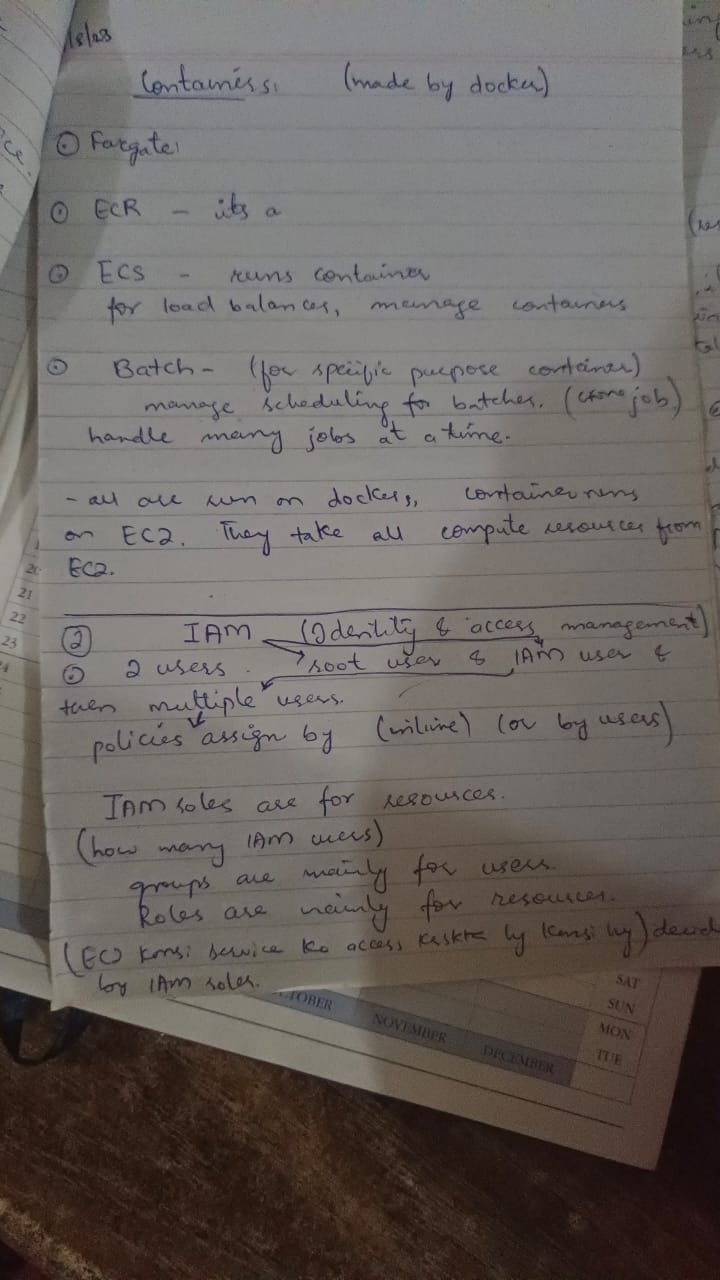 /8/23
Containers, (made by docker)
Fargate,
ECR - its a
ECS - runs container
for load balances, manage containers
Batch - (for specific purpose container)
manage scheduling for batches. (crone job)
handle many jobs at a time.
- all are run on dockers, container runs
on EC2. They take all compute resources from
EC2.
2 IAM (Identity & access management)
2 users. root user & IAM user &
then multiple users.
policies assign by (inline) (or by users)
IAM roles are for resources.
(how many IAM users)
groups are mainly for users.
Roles are mainly for resources.
(EC2 konsi service ko access kaskte hy konsi hy) decid
by IAM roles.
20
21
22
23
SAT
SUN
MON
TUE
TOBER
NOVEMBER
DECEMBER